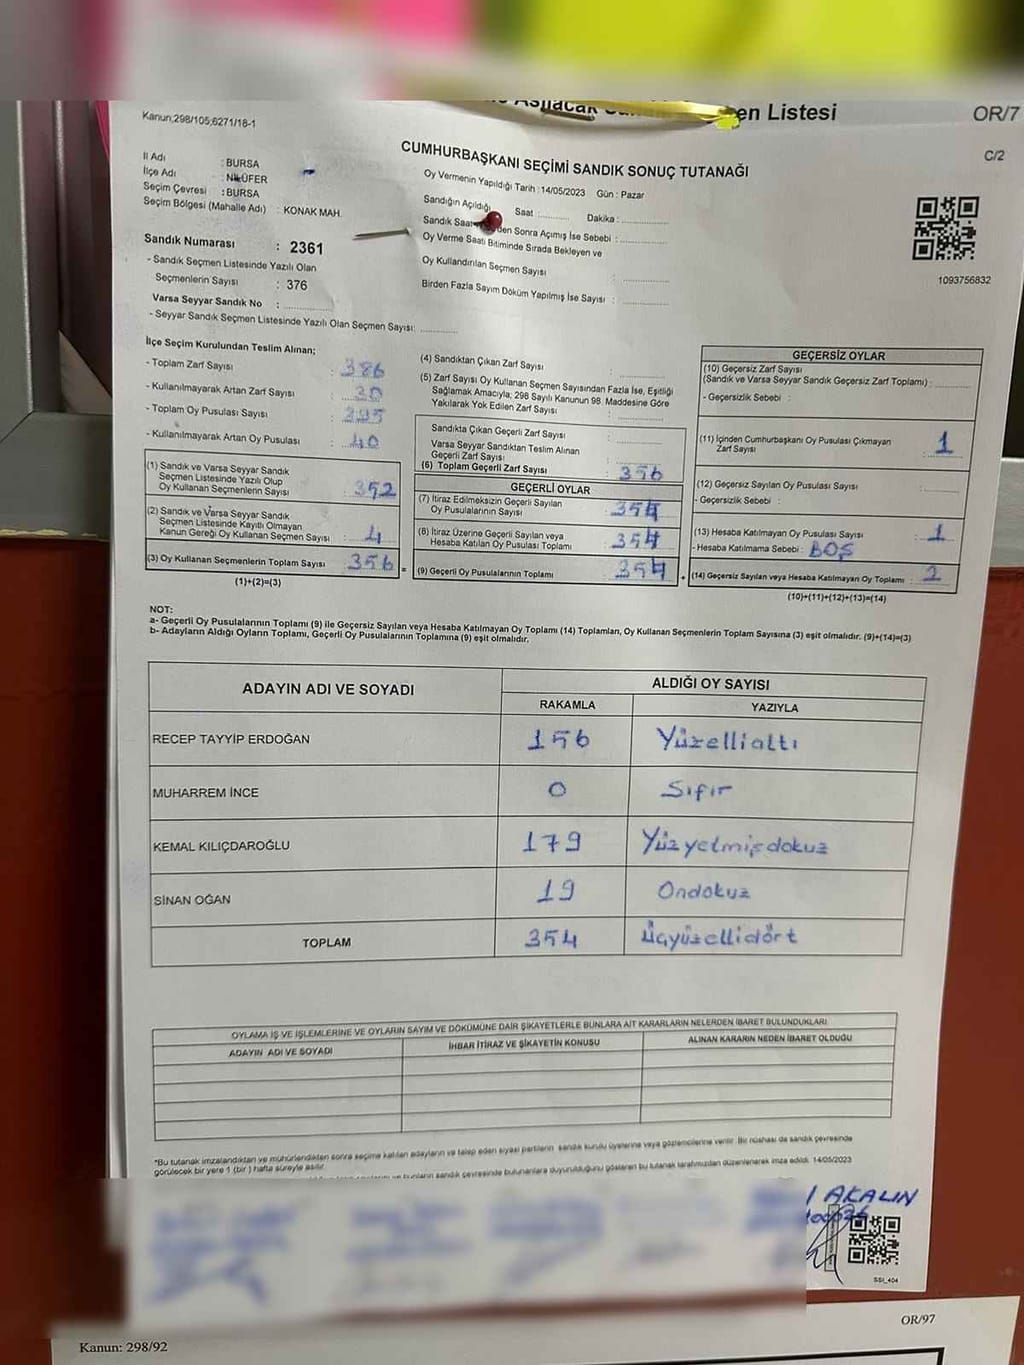 Asılacak
en Listesi
OR/7
Kanun;298/105;6271/18-1
C/2
CUMHURBAŞKANI SEÇİMİ SANDIK SONUÇ TUTANAĞI
İl Adı : BURSA
İlçe Adı : NİLÜFER
Seçim Çevresi : BURSA
Seçim Bölgesi (Mahalle Adı) : KONAK MAH.
Oy Vermenin Yapıldığı Tarih :14/05/2023 Gün : Pazar
Sandığın Açıldığı Saat ........... Dakika : ...............
Sandık Saat den Sonra Açımış İse Sebebi : ...............
Oy Verme Saati Bitiminde Sırada Bekleyen ve
Oy Kullandırılan Seçmen Sayısı : ...............
Birden Fazla Sayım Döküm Yapılmış İse Sayısı : ...............
1093756832
Sandık Numarası : 2361
- Sandık Seçmen Listesinde Yazılı Olan
Seçmenlerin Sayısı : 376
Varsa Seyyar Sandık No : ...............
- Seyyar Sandık Seçmen Listesinde Yazılı Olan Seçmen Sayısı: ............
İlçe Seçim Kurulundan Teslim Alınan;
- Toplam Zarf Sayısı : 386
- Kullanılmayarak Artan Zarf Sayısı : 30
- Toplam Oy Pusulası Sayısı : 395
- Kullanılmayarak Artan Oy Pusulası : 40
(1) Sandık ve Varsa Seyyar Sandık
Seçmen Listesinde Yazılı Olup
Oy Kullanan Seçmenlerin Sayısı : 352
(2) Sandık ve Varsa Seyyar Sandık
Seçmen Listesinde Kayıtlı Olmayan
Kanun Gereği Oy Kullanan Seçmen Sayısı : 4
(3) Oy Kullanan Seçmenlerin Toplam Sayısı : 356
(1)+(2)=(3)
(4) Sandıktan Çıkan Zarf Sayısı : ...............
(5) Zarf Sayısı Oy Kullanan Seçmen Sayısından Fazla İse, Eşitliği
Sağlamak Amacıyla; 298 Sayılı Kanunun 98. Maddesine Göre
Yakılarak Yok Edilen Zarf Sayısı : ...............
Sandıkta Çıkan Geçerli Zarf Sayısı : ...............
Varsa Seyyar Sandıktan Teslim Alınan
Geçerli Zarf Sayısı : ...............
(6) Toplam Geçerli Zarf Sayısı : 356
GEÇERLİ OYLAR
(7) İtiraz Edilmeksizin Geçerli Sayılan
Oy Pusulalarının Sayısı : 354
(8) İtiraz Üzerine Geçerli Sayılan veya
Hesaba Katılan Oy Pusulası Toplamı : 354
= (9) Geçerli Oy Pusulalarının Toplamı : 354 +
GEÇERSİZ OYLAR
(10) Geçersiz Zarf Sayısı
(Sandık ve Varsa Seyyar Sandık Geçersiz Zarf Toplamı) : ............
- Geçersizlik Sebebi :
(11) İçinden Cumhurbaşkanı Oy Pusulası Çıkmayan
Zarf Sayısı : 1
(12) Geçersiz Sayılan Oy Pusulası Sayısı : ............
- Geçersizlik Sebebi :
(13) Hesaba Katılmayan Oy Pusulası Sayısı : 1
- Hesaba Katılmama Sebebi : BOŞ
(14) Geçersiz Sayılan veya Hesaba Katılmayan Oy Toplamı : 2
(10)+(11)+(12)+(13)=(14)
NOT:
a- Geçerli Oy Pusulalarının Toplamı (9) ile Geçersiz Sayılan veya Hesaba Katılmayan Oy Toplamı (14) Toplamları, Oy Kullanan Seçmenlerin Toplam Sayısına (3) eşit olmalıdır. (9)+(14)=(3)
b- Adayların Aldığı Oyların Toplamı, Geçerli Oy Pusulalarının Toplamına (9) eşit olmalıdır.
ADAYIN ADI VE SOYADI ALDIĞI OY SAYISI
RAKAMLA YAZIYLA
RECEP TAYYİP ERDOĞAN 156 Yüzellialtı
MUHARREM İNCE 0 Sıfır
KEMAL KILIÇDAROĞLU 179 Yüzyetmişdokuz
SİNAN OĞAN 19 Ondokuz
TOPLAM 354 Üçyüzellidört
OYLAMA İŞ VE İŞLEMLERİNE VE OYLARIN SAYIM VE DÖKÜMÜNE DAİR ŞİKAYETLERLE BUNLARA AİT KARARLARIN NELERDEN İBARET BULUNDUKLARI
ADAYIN ADI VE SOYADI İHBAR İTİRAZ VE ŞİKAYETİN KONUSU ALINAN KARARIN NEDEN İBARET OLDUĞU
*Bu tutanak imzalandıktan ve mühürlendikten sonra seçime katılan adayların ve talep eden siyasi partilerin sandık kurulu üyelerine veya gözlemcilerine verilir. Bir nüshası da sandık çevresinde
görülecek bir yere 1 (bir) hafta süreyle asılır.
sandık çevresinde bulunanlara duyurulduğunu gösteren bu tutanak tarafımızdan düzenlenerek imza edildi. 14/05/2023
AKALIN
SSİ_404
OR/97
Kanun: 298/92